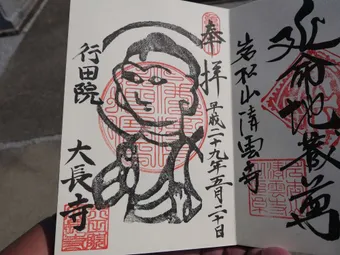 延命地蔵尊
岩松山清雲寺
奉拝
平成二十九年五月二十日
行田院
大長寺